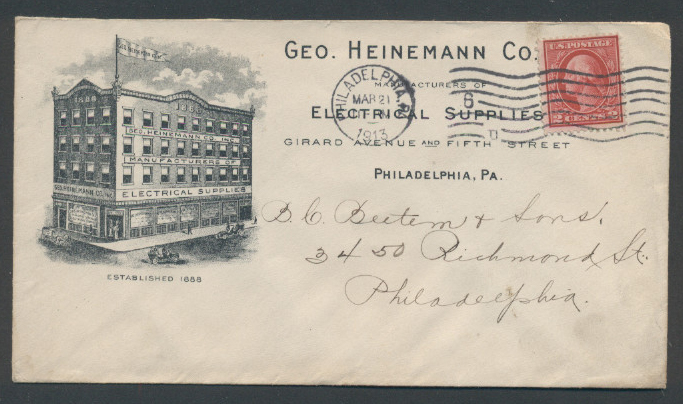 GEO. HEINEMANN CO.
MANUFACTURERS OF
ELECTRICAL SUPPLIES
GIRARD AVENUE AND FIFTH STREET
PHILADELPHIA, PA.
PHILADELPHIA, PA.
MAR 21
1913
6
U.S. POSTAGE
2 CENTS 2
1888
1888
GEO. HEINEMANN CO. INC.
MANUFACTURERS OF
ELECTRICAL SUPPLIES
GEO. HEINEMANN CO. INC.
ESTABLISHED 1888
B. C. Beetem & Sons.
3450 Richmond St.
Philadelphia.